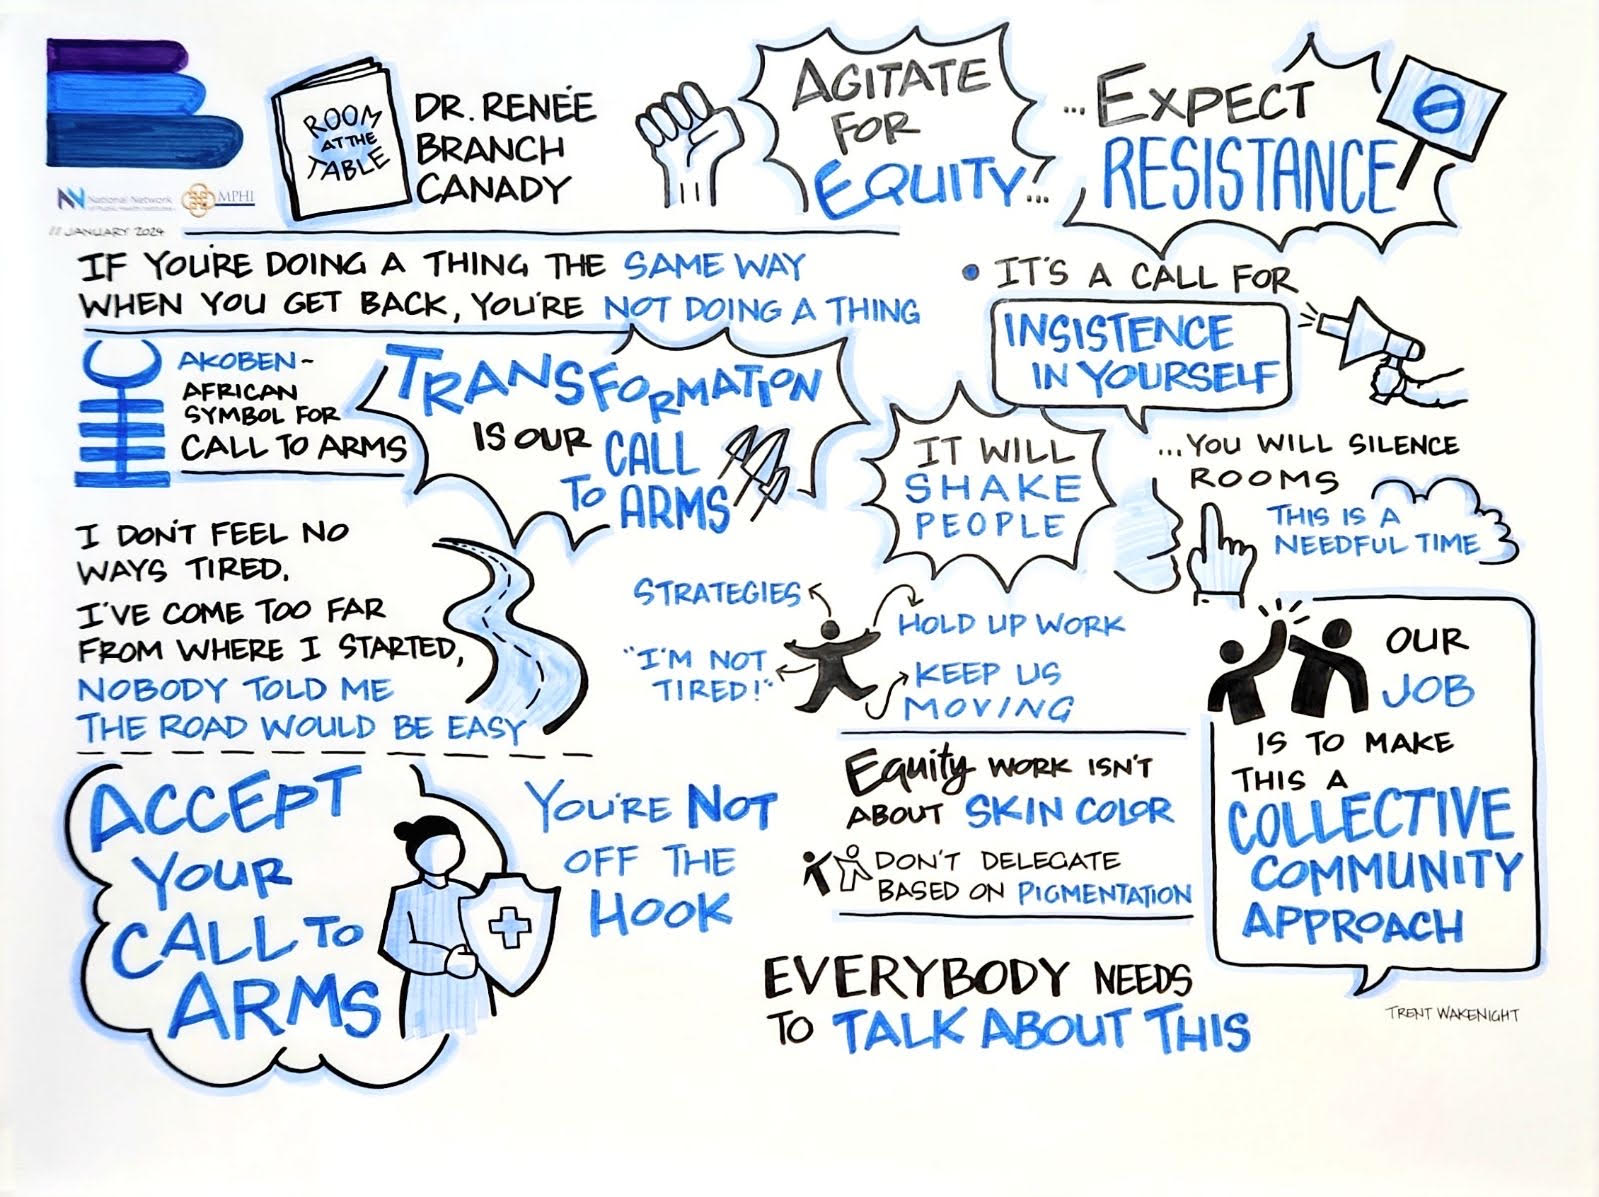 National Network
of Public Health Institutes
MPHI
// JANUARY 2024
ROOM
AT THE
TABLE
DR. RENÉE
BRANCH
CANADY
AGITATE
FOR
EQUITY...
...EXPECT
RESISTANCE
IF YOU'RE DOING A THING THE SAME WAY
WHEN YOU GET BACK, YOU'RE NOT DOING A THING
AKOBEN~
AFRICAN
SYMBOL FOR
CALL TO ARMS
TRANSFORMATION
IS OUR CALL
TO ARMS
• IT'S A CALL FOR
INSISTENCE
IN YOURSELF
IT WILL
SHAKE
PEOPLE
...YOU WILL SILENCE
ROOMS
THIS IS A
NEEDFUL TIME
I DON'T FEEL NO
WAYS TIRED.
I'VE COME TOO FAR
FROM WHERE I STARTED,
NOBODY TOLD ME
THE ROAD WOULD BE EASY
STRATEGIES
HOLD UP WORK
"I'M NOT
TIRED!"
KEEP US
MOVING
OUR
JOB
IS TO MAKE
THIS A
COLLECTIVE
COMMUNITY
APPROACH
ACCEPT
YOUR
CALL TO
ARMS
YOU'RE NOT
OFF THE
HOOK
Equity WORK ISN'T
ABOUT SKIN COLOR
DON'T DELEGATE
BASED ON PIGMENTATION
EVERYBODY NEEDS
TO TALK ABOUT THIS
TRENT WAKENIGHT